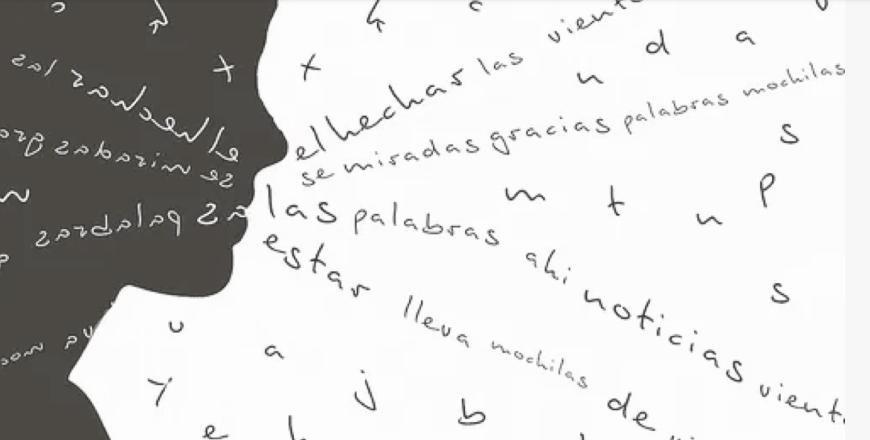 el hechar las
se miradas gracias palabras mochilas
las palabras ahi noticias
estar lleva mochilas de
d a
n
s
m t n p
s
u a
y j b
e